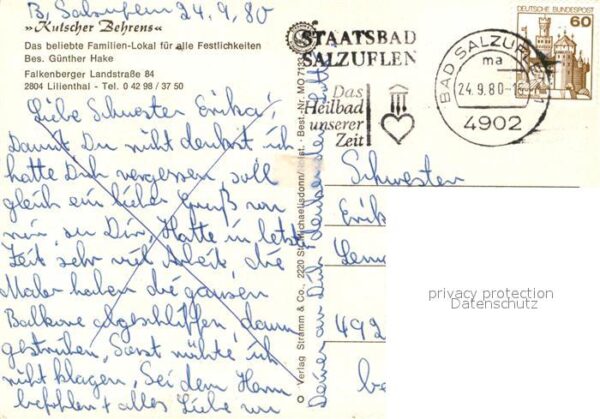 B, Salzuflen 24.9.80
»Kutscher Behrens«
Das beliebte Familien-Lokal für alle Festlichkeiten
Bes. Günther Hake
Falkenberger Landstraße 84
2804 Lilienthal - Tel. 0 42 98 / 37 50
Liebe Schwester Erika!
Damit Du nicht denkst ich
hatte Dich vergessen soll
gleich ein lieber Gruß von
mir zu Dir, Hatte in letzter
Zeit sehr viel Arbeit die
Maler haben die ganzen
Balkone abgeschliffen, dann
gestrichen, Sonst möchte ich
nicht klagen, Sei dem Herrn
befohlen + alles Liebe von
Deiner an Dich denkenden
Verlag Stramm & Co., 2220 St. Michaelisdonn/Holst. - Best. Nr. MO 7133
STAATSBAD
SALZUFLEN
Das
Heilbad
unserer
Zeit
BAD SALZUFLEN 1
ma
24.9.80-16
4902
DEUTSCHE BUNDESPOST
60
Schwester
Erik
492
privacy protection
Datenschutz